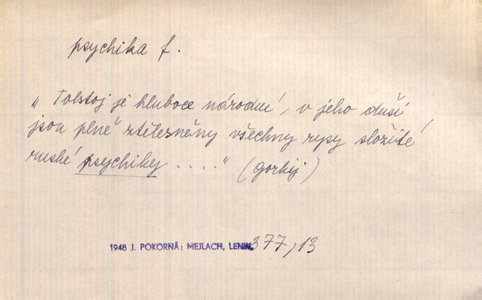 psychika f.
„Tolstoj je hluboce národní, v jeho duši
jsou plně ztělesněny všechny rysy složité
ruské psychiky ...." (Gorkij)
1948 J. POKORNÁ: MEJLACH, LENIN, 377, 13